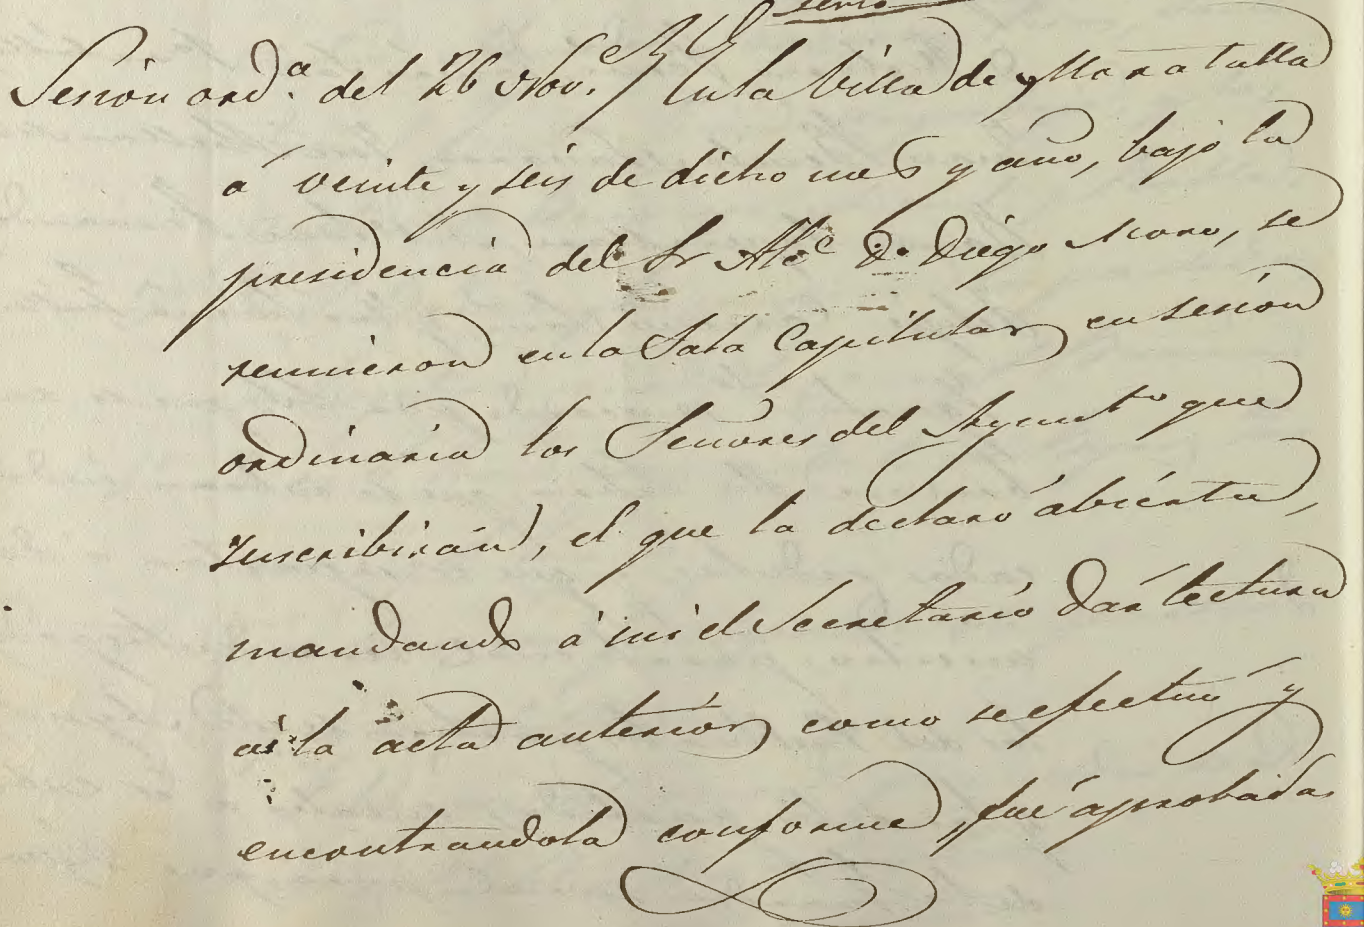 Sesión ord.ª del 26 Nov.e En la Villa de Moratalla
á veinte y seis de dicho mes y año, bajo la
presidencia del Sr Alc.e D. Diego , se
reunieron en la Sala Capitular en sesión
ordinaria los Señores del Ayunt.º que
suscribirán, el que la declaró abierta,
mandando á mi el Secretario dar lectura
á la acta anterior como se efectuó y
encontrandola conforme, fué aprobada.